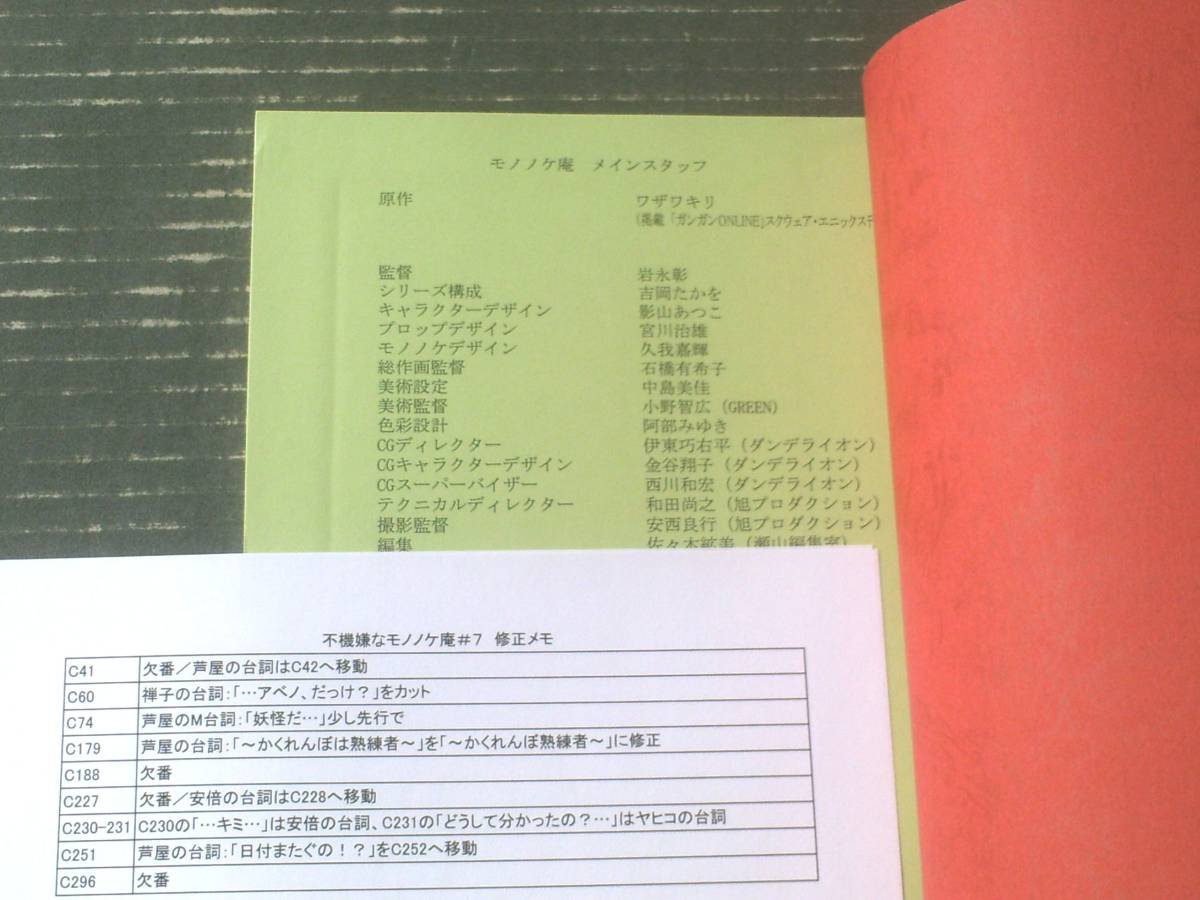 モノノケ庵 メインスタッフ
原作 ワザワキリ
(掲載「ガンガンONLINE」スクウェア・エニックス
監督 岩永彰
シリーズ構成 吉岡たかを
キャラクターデザイン 影山あつこ
プロップデザイン 宮川治雄
モノノケデザイン 久我嘉輝
総作画監督 石橋有希子
美術設定 中島美佳
美術監督 小野智広(GREEN)
色彩設計 阿部みゆき
CGディレクター 伊東巧右平(ダンデライオン)
CGキャラクターデザイン 金谷翔子(ダンデライオン)
CGスーパーバイザー 西川和宏(ダンデライオン)
テクニカルディレクター 和田尚之(旭プロダクション)
撮影監督 安西良行(旭プロダクション)
編集 佐々木紘美(瀬山編集室)
不機嫌なモノノケ庵#7 修正メモ
C41 欠番/芦屋の台詞はC42へ移動
C60 禅子の台詞:「…アベノ、だっけ?」をカット
C74 芦屋のM台詞:「妖怪だ…」少し先行で
C179 芦屋の台詞:「~かくれんぼは熟練者~」を「~かくれんぼ熟練者~」に修正
C188 欠番
C227 欠番/安倍の台詞はC228へ移動
C230-231 C230の「…キミ…」は安倍の台詞、C231の「どうして分かったの?…」はヤヒコの台詞
C251 芦屋の台詞:「日付またぐの!?」をC252へ移動
C296 欠番